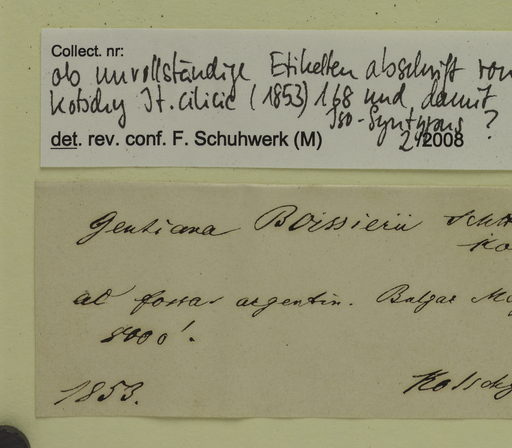 Collect. nr:
ob unvollständige Etiketten abschrift von
Kotschy It. cilicic (1853) 168 und damit
Iso-Syntypus ?
det. rev. conf. F. Schuhwerk (M) 2/2008
Gentiana Boissierii Schtt
Ko
ad fossas argentin. Bulgar Ma
8000'.
1853. Kotschy